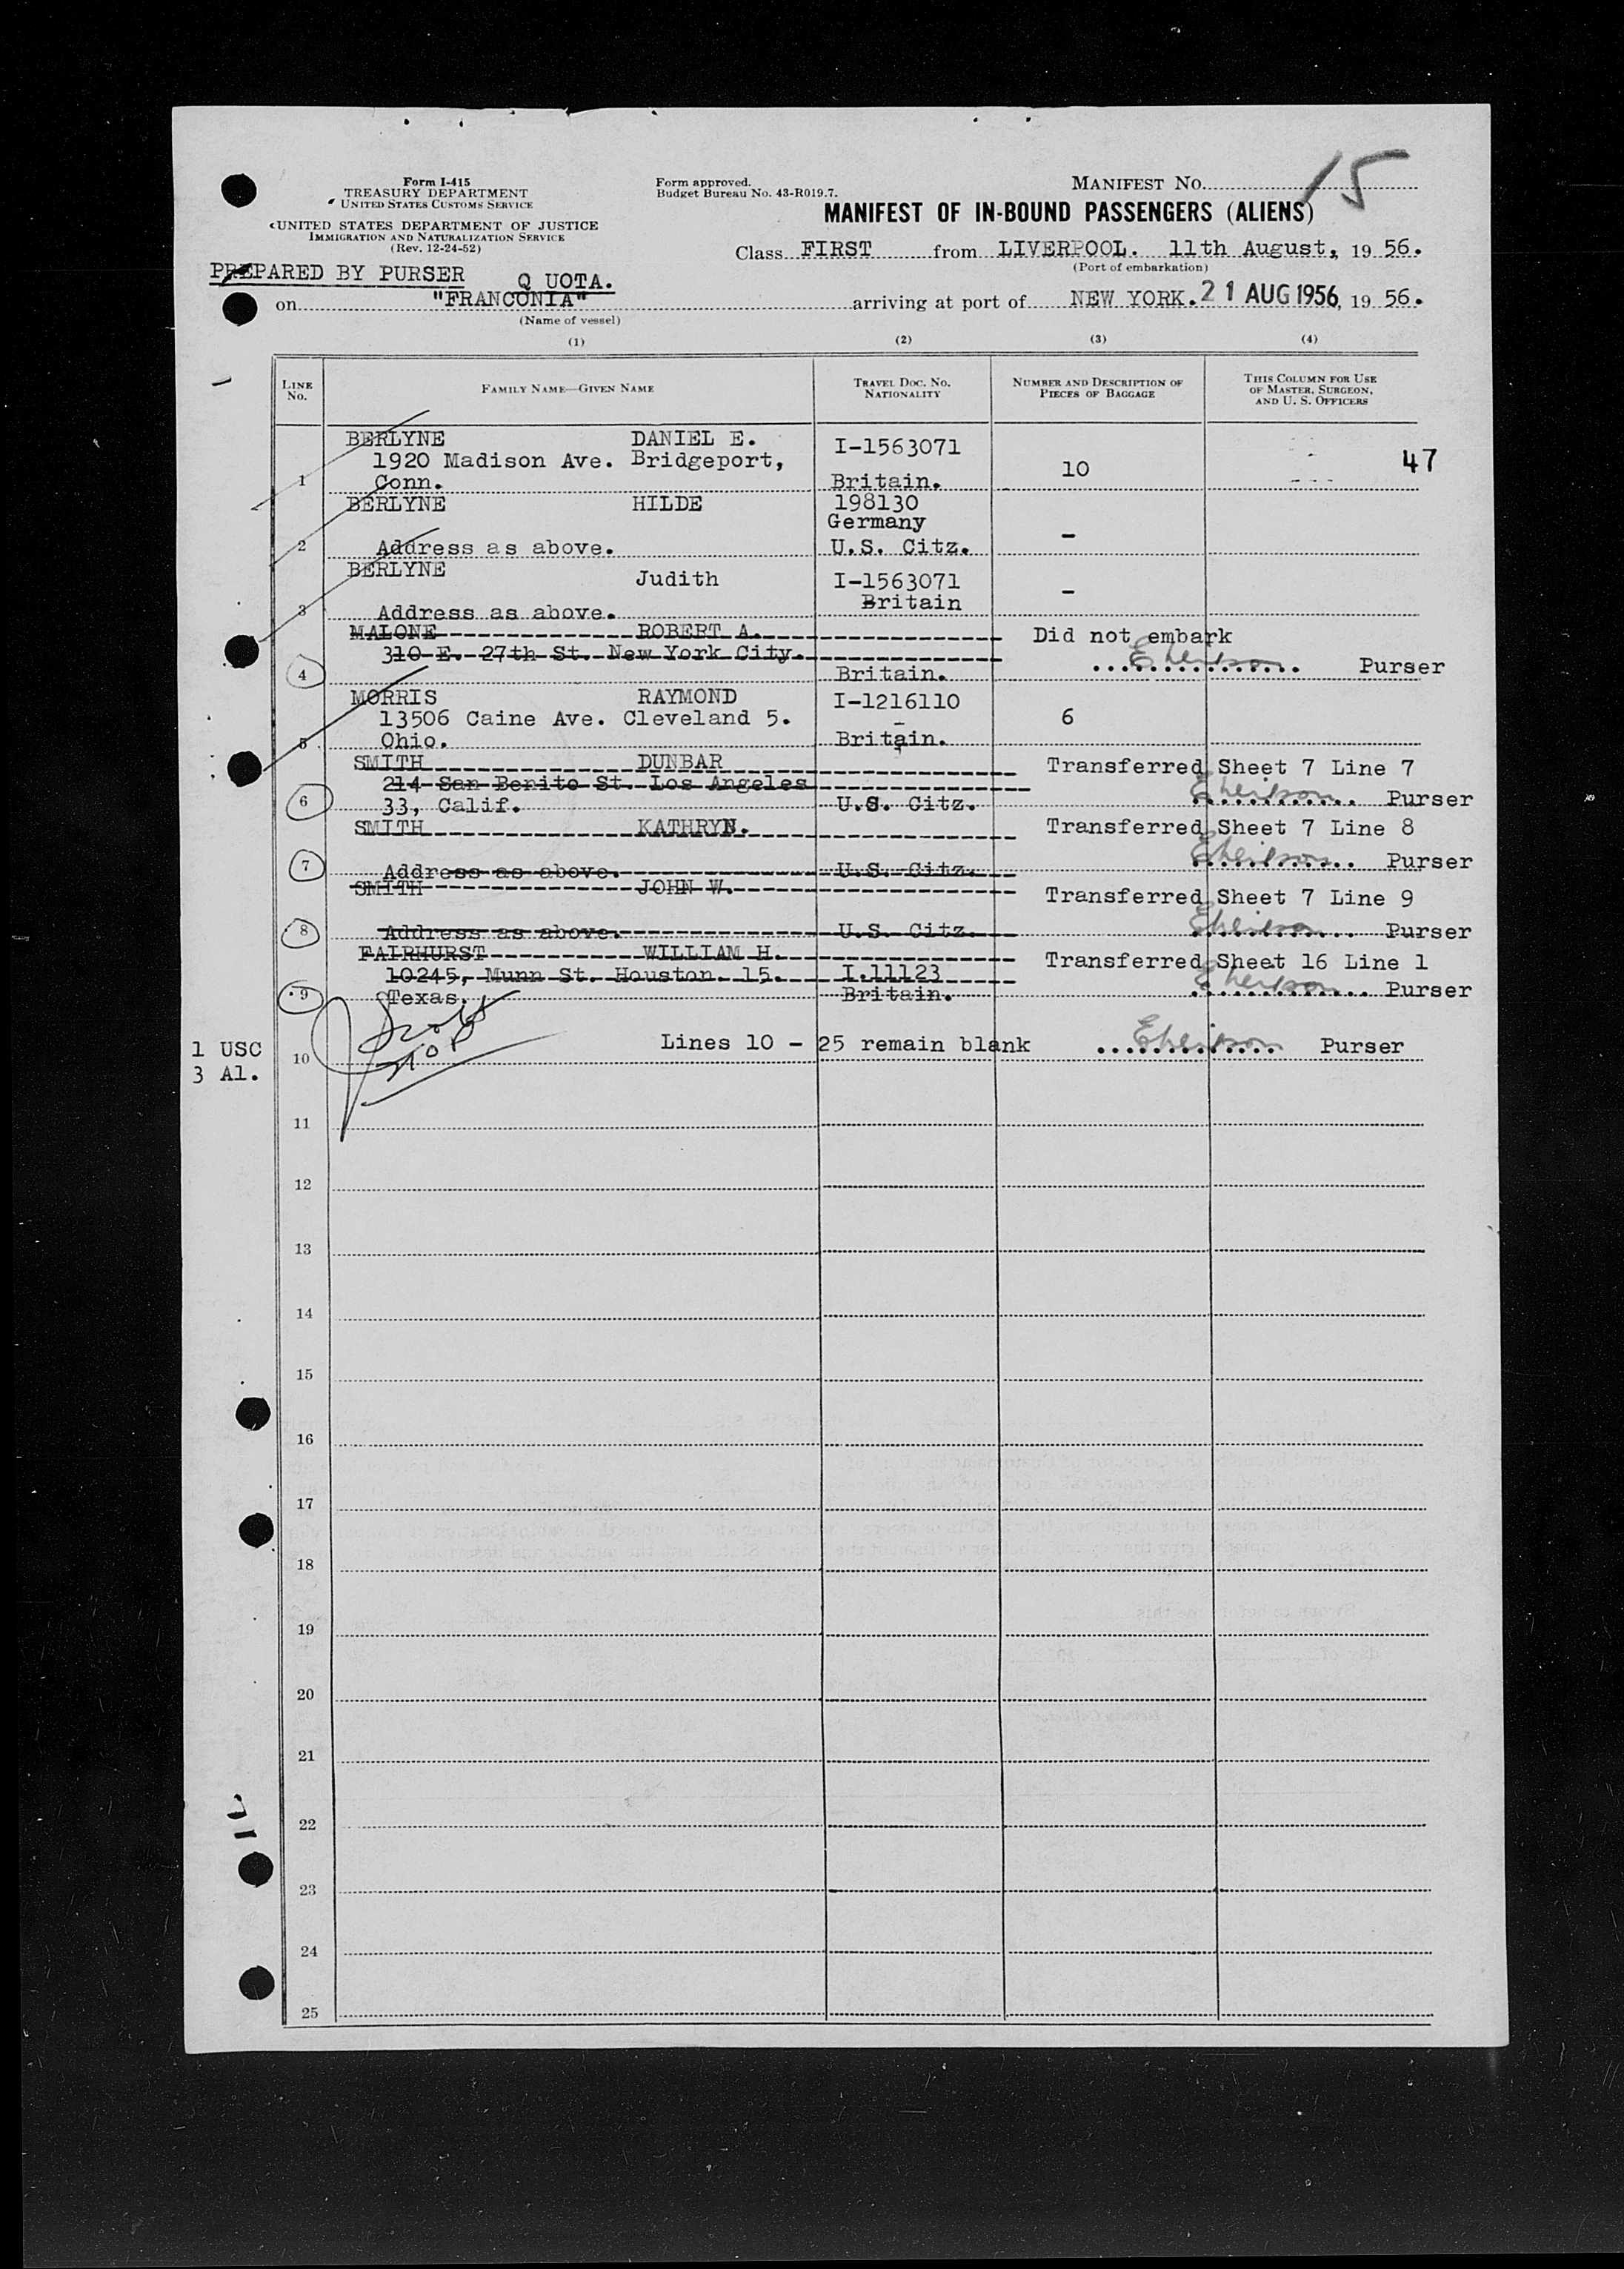 Form I-415
TREASURY DEPARTMENT
UNITED STATES CUSTOMS SERVICE
UNITED STATES DEPARTMENT OF JUSTICE
IMMIGRATION AND NATURALIZATION SERVICE
(Rev. 12-24-52)
Form approved.
Budget Bureau No. 43-R019.7.
MANIFEST NO. 15
MANIFEST OF IN-BOUND PASSENGERS (ALIENS)
Class FIRST from LIVERPOOL. 11th August, 19 56.
(Port of embarkation)
PREPARED BY PURSER
Q UOTA.
on "FRANCONIA" arriving at port of NEW YORK. 21 AUG 1956, 19 56.
(Name of vessel)
(1) (2) (3) (4)
LINE NO. FAMILY NAME—GIVEN NAME TRAVEL DOC. NO. NATIONALITY NUMBER AND DESCRIPTION OF PIECES OF BAGGAGE THIS COLUMN FOR USE OF MASTER, SURGEON, AND U. S. OFFICERS
BERLYNE DANIEL E. I-1563071
1920 Madison Ave. Bridgeport, 10 47
1 Conn. Britain.
BERLYNE HILDE 198130
Germany
2 Address as above. U.S. Citz. -
BERLYNE Judith I-1563071
Britain -
3 Address as above.
MALONE ROBERT A. Did not embark
310 E. 27th St. New York City. Purser
4 Britain.
MORRIS RAYMOND I-1216110
13506 Caine Ave. Cleveland 5. - 6
5 Ohio. Britain.
SMITH DUNBAR Transferred Sheet 7 Line 7
214 San Benito St. Los Angeles
6 33, Calif. U.S. Citz. Purser
SMITH KATHRYN. Transferred Sheet 7 Line 8
7 Address as above. U.S. Citz. Purser
SMITH JOHN W. Transferred Sheet 7 Line 9
8 Address as above. U.S. Citz. Purser
FAIRHURST WILLIAM H. Transferred Sheet 16 Line 1
10245, Munn St. Houston. 15. I.11123
9 Texas. Britain. Purser
1 USC
10 Lines 10 - 25 remain blank Purser
3 Al.
11
12
13
14
15
16
17
18
19
20
21
22
23
24
25